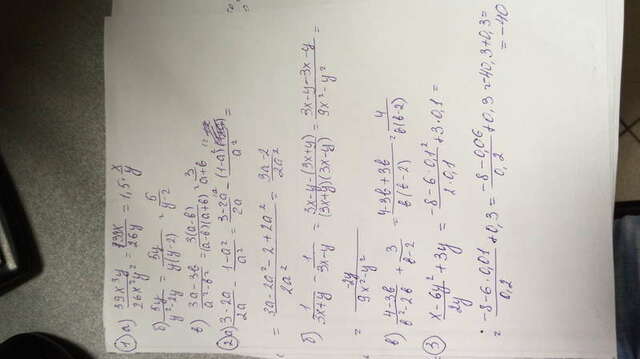 ① а) 39x³y / 26x²y² = 39x / 26y = 1,5 · x/y
б) 5y / y²-2y = 5y / y(y-2) = 5 / y-2
в) 3a-3b / a²-b² = 3(a-b) / (a-b)(a+b) = 3 / a+b
② а) 3-2a / 2a - 1-a² / a² = 3-2a / 2a - (1-a²) / a² =
= 3a-2a²-2+2a² / 2a² = 3a-2 / 2a²
б) 1 / 3x+y - 1 / 3x-y = 3x-y-(3x+y) / (3x+y)(3x-y) = 3x-y-3x-y / 9x²-y² =
= -2y / 9x²-y²
в) 4-3b / b²-2b + 3 / b-2 = 4-3b+3b / b(b-2) = 4 / b(b-2)
③ x-6y² / 2y + 3y = -8-6·0,1² / 2·0,1 + 3·0,1 =
= -8-6·0,01 / 0,2 + 0,3 = -8-0,06 / 0,2 + 0,3 = -40,3+0,3=
= -40